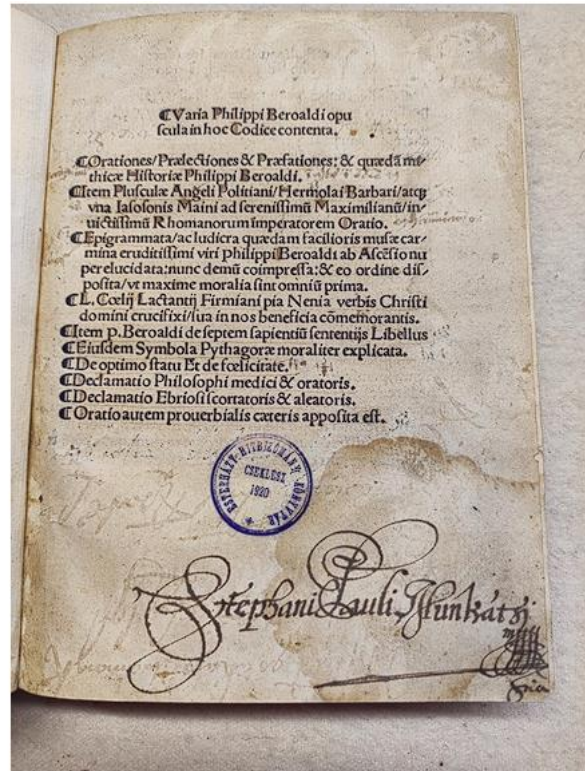 ¶Varia Philippi Beroaldi opu
scula in hoc Codice contenta.
¶Orationes/Prælectiones & Præfationes: & quædā mi-
thicæ Historiæ Philippi Beroaldi.
¶Item Plusculæ Angeli Politiani/Hermolai Barbari/atqꝫ
vna Iasosonis Maini ad serenissimū Maximilianū/in-
uictissimū Rhomanorum imperatorem Oratio.
¶Epigrammata/ac ludicra quædam facilioris musæ car-
mina eruditissimi viri philippi Beroaldi ab Ascēsio nu
per elucidata: nunc demū coimpressa: & eo ordine dis-
posita/vt maxime moralia sint omniū prima.
¶L. Cœlij Lactantij Firmiani pia Nenia verbis Christi
domini crucifixi/sua in nos beneficia cōmemorantis.
¶Item p. Beroaldi de septem sapientiū sententijs Libellus
¶Eiusdem Symbola Pythagoræ moraliter explicata.
¶De optimo statu Et de fœlicitate.
¶Declamatio Philosophi medici & oratoris.
¶Declamatio Ebriosi scortatoris & aleatoris.
¶Oratio autem prouerbialis cæteris apposita est.
ESTERHÁZY-HITBIZOMÁNYI KÖNYVTÁR
CSEKLÉSZ
1920
Stephani Pauli Munkátsi